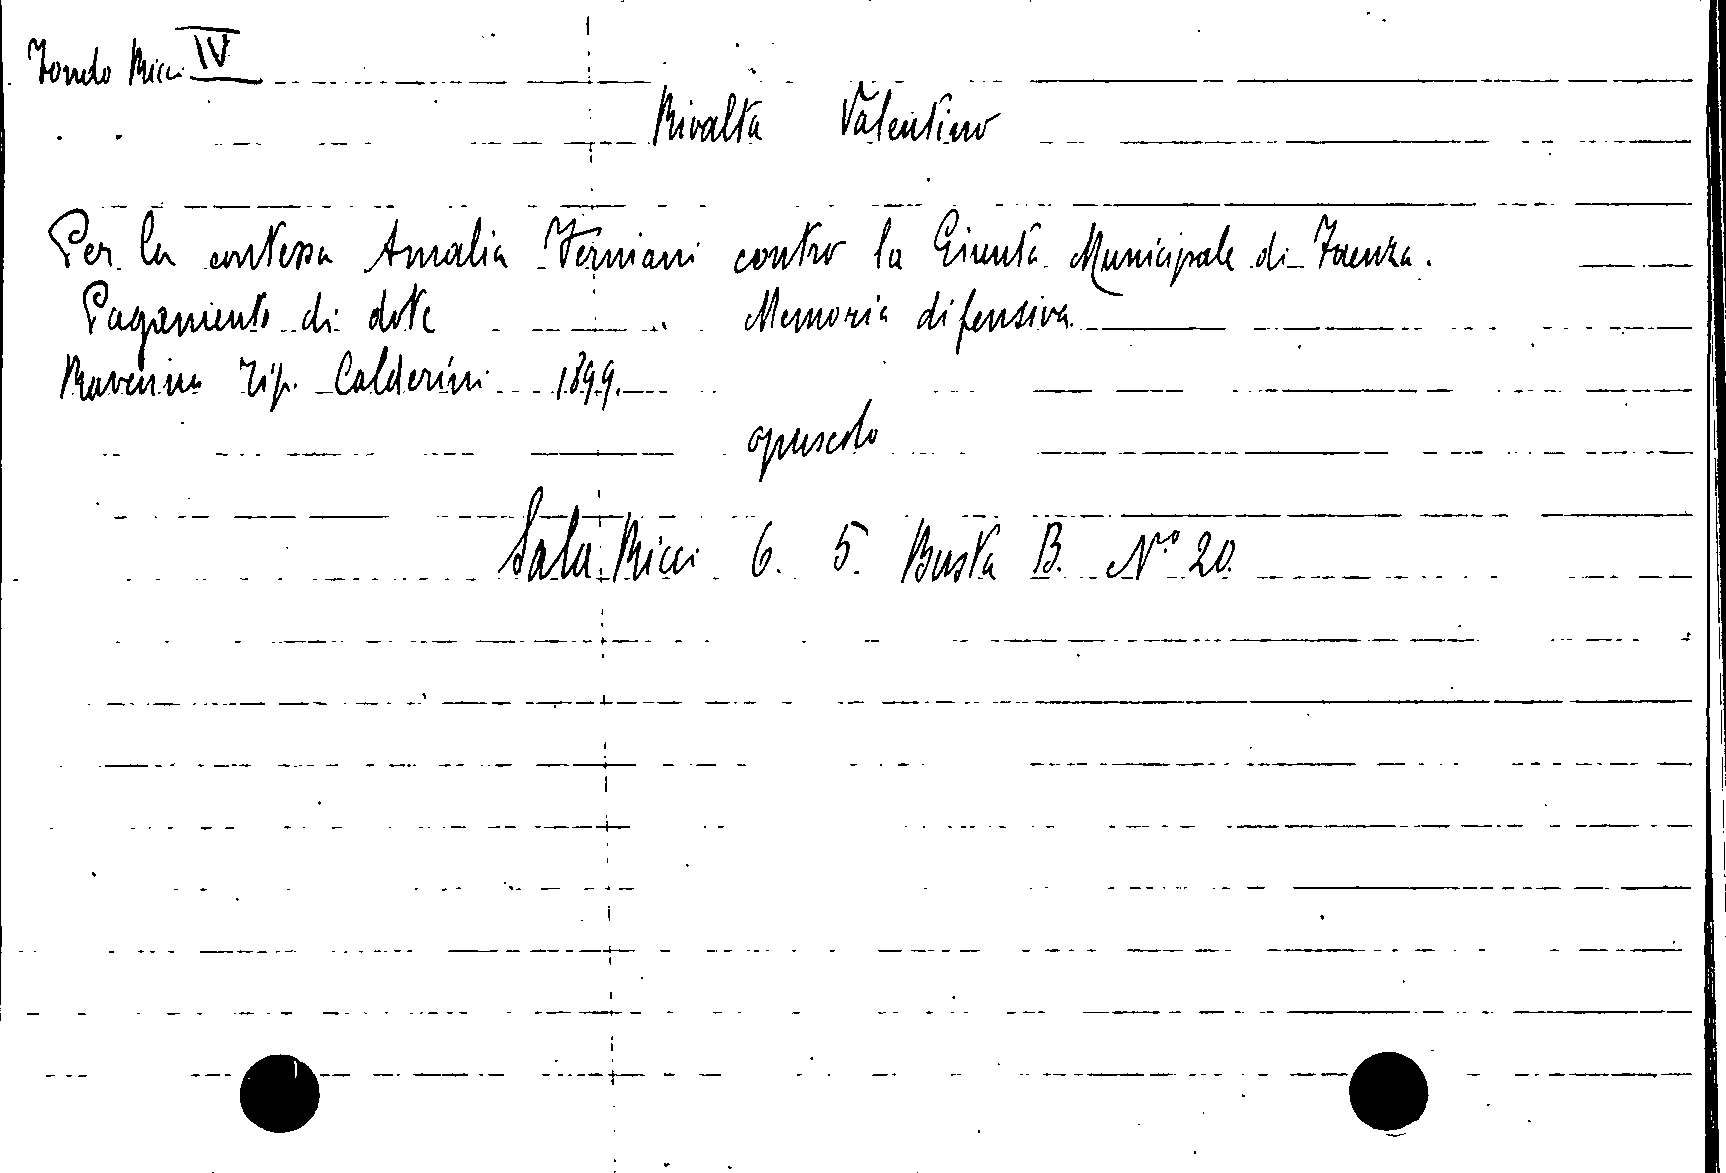 Fondo Ricci IV
Rivalta Valentino
Per la contessa Amalia Verniani contro la Giunta Municipale di Faenza.
Pagamento di dote Memoria difensiva.
Ravenna Tip. Calderini 1899.
opuscolo
Sala Ricci 6. 5. Busta B. N° 20.